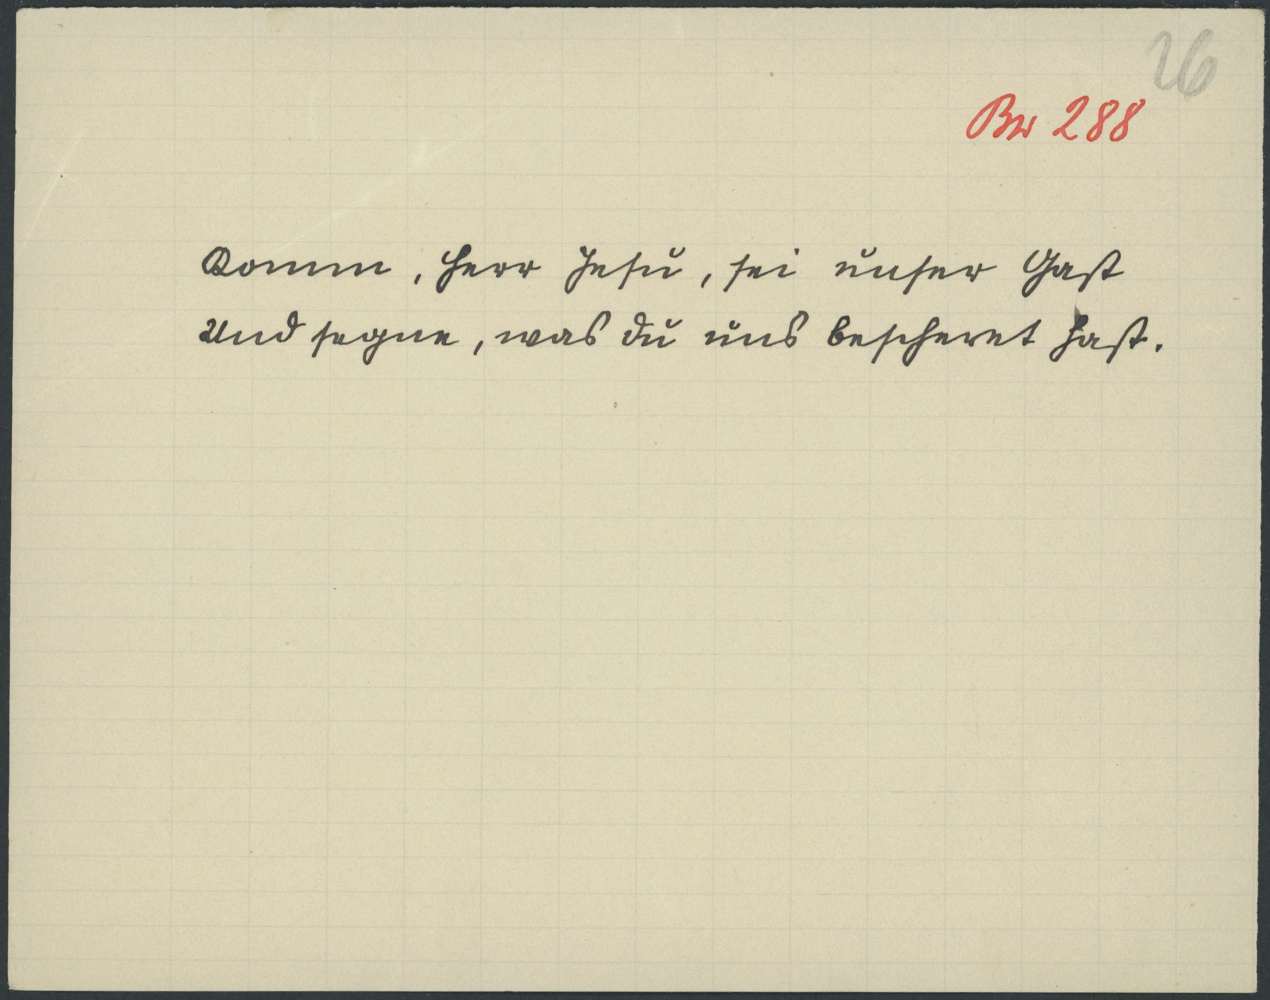 26
Br 288
Komm, Herr Jesu, sei unser Gast
Und segne, was du uns bescheret hast.